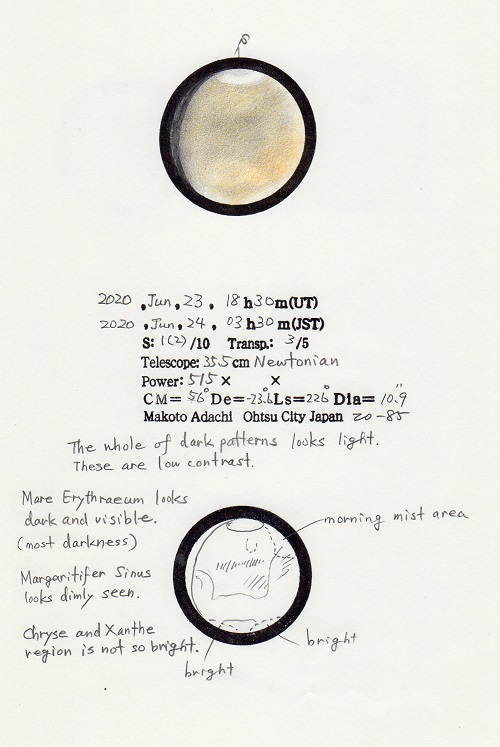 S
2020 , Jun , 23 , 18 h 30 m(UT)
2020 , Jun , 24 , 03 h 30 m(JST)
S: 1(2) /10 Transp.: 3/5
Telescope: 35.5 cm Newtonian
Power: 515 × ×
CM= 56° De= -23.6° Ls= 226° Dia= 10.9"
Makoto Adachi Ohtsu City Japan 20-85
The whole of dark patterns looks light.
These are low contrast.
Mare Erythraeum looks
dark and visible.
(most darkness)
morning mist area
Margaritifer Sinus
looks dimly seen.
Chryse and Xanthe
region is not so bright.
bright
bright